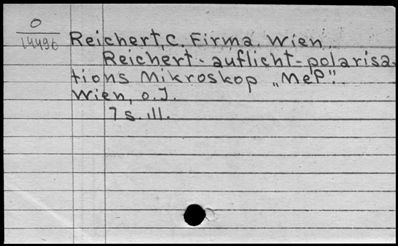 0
14496
Reichert, C. Firma. Wien.
Reichert-auflicht-polarisa-
tions Mikroskop „MeP".
Wien, o.J.
7 s. ill.